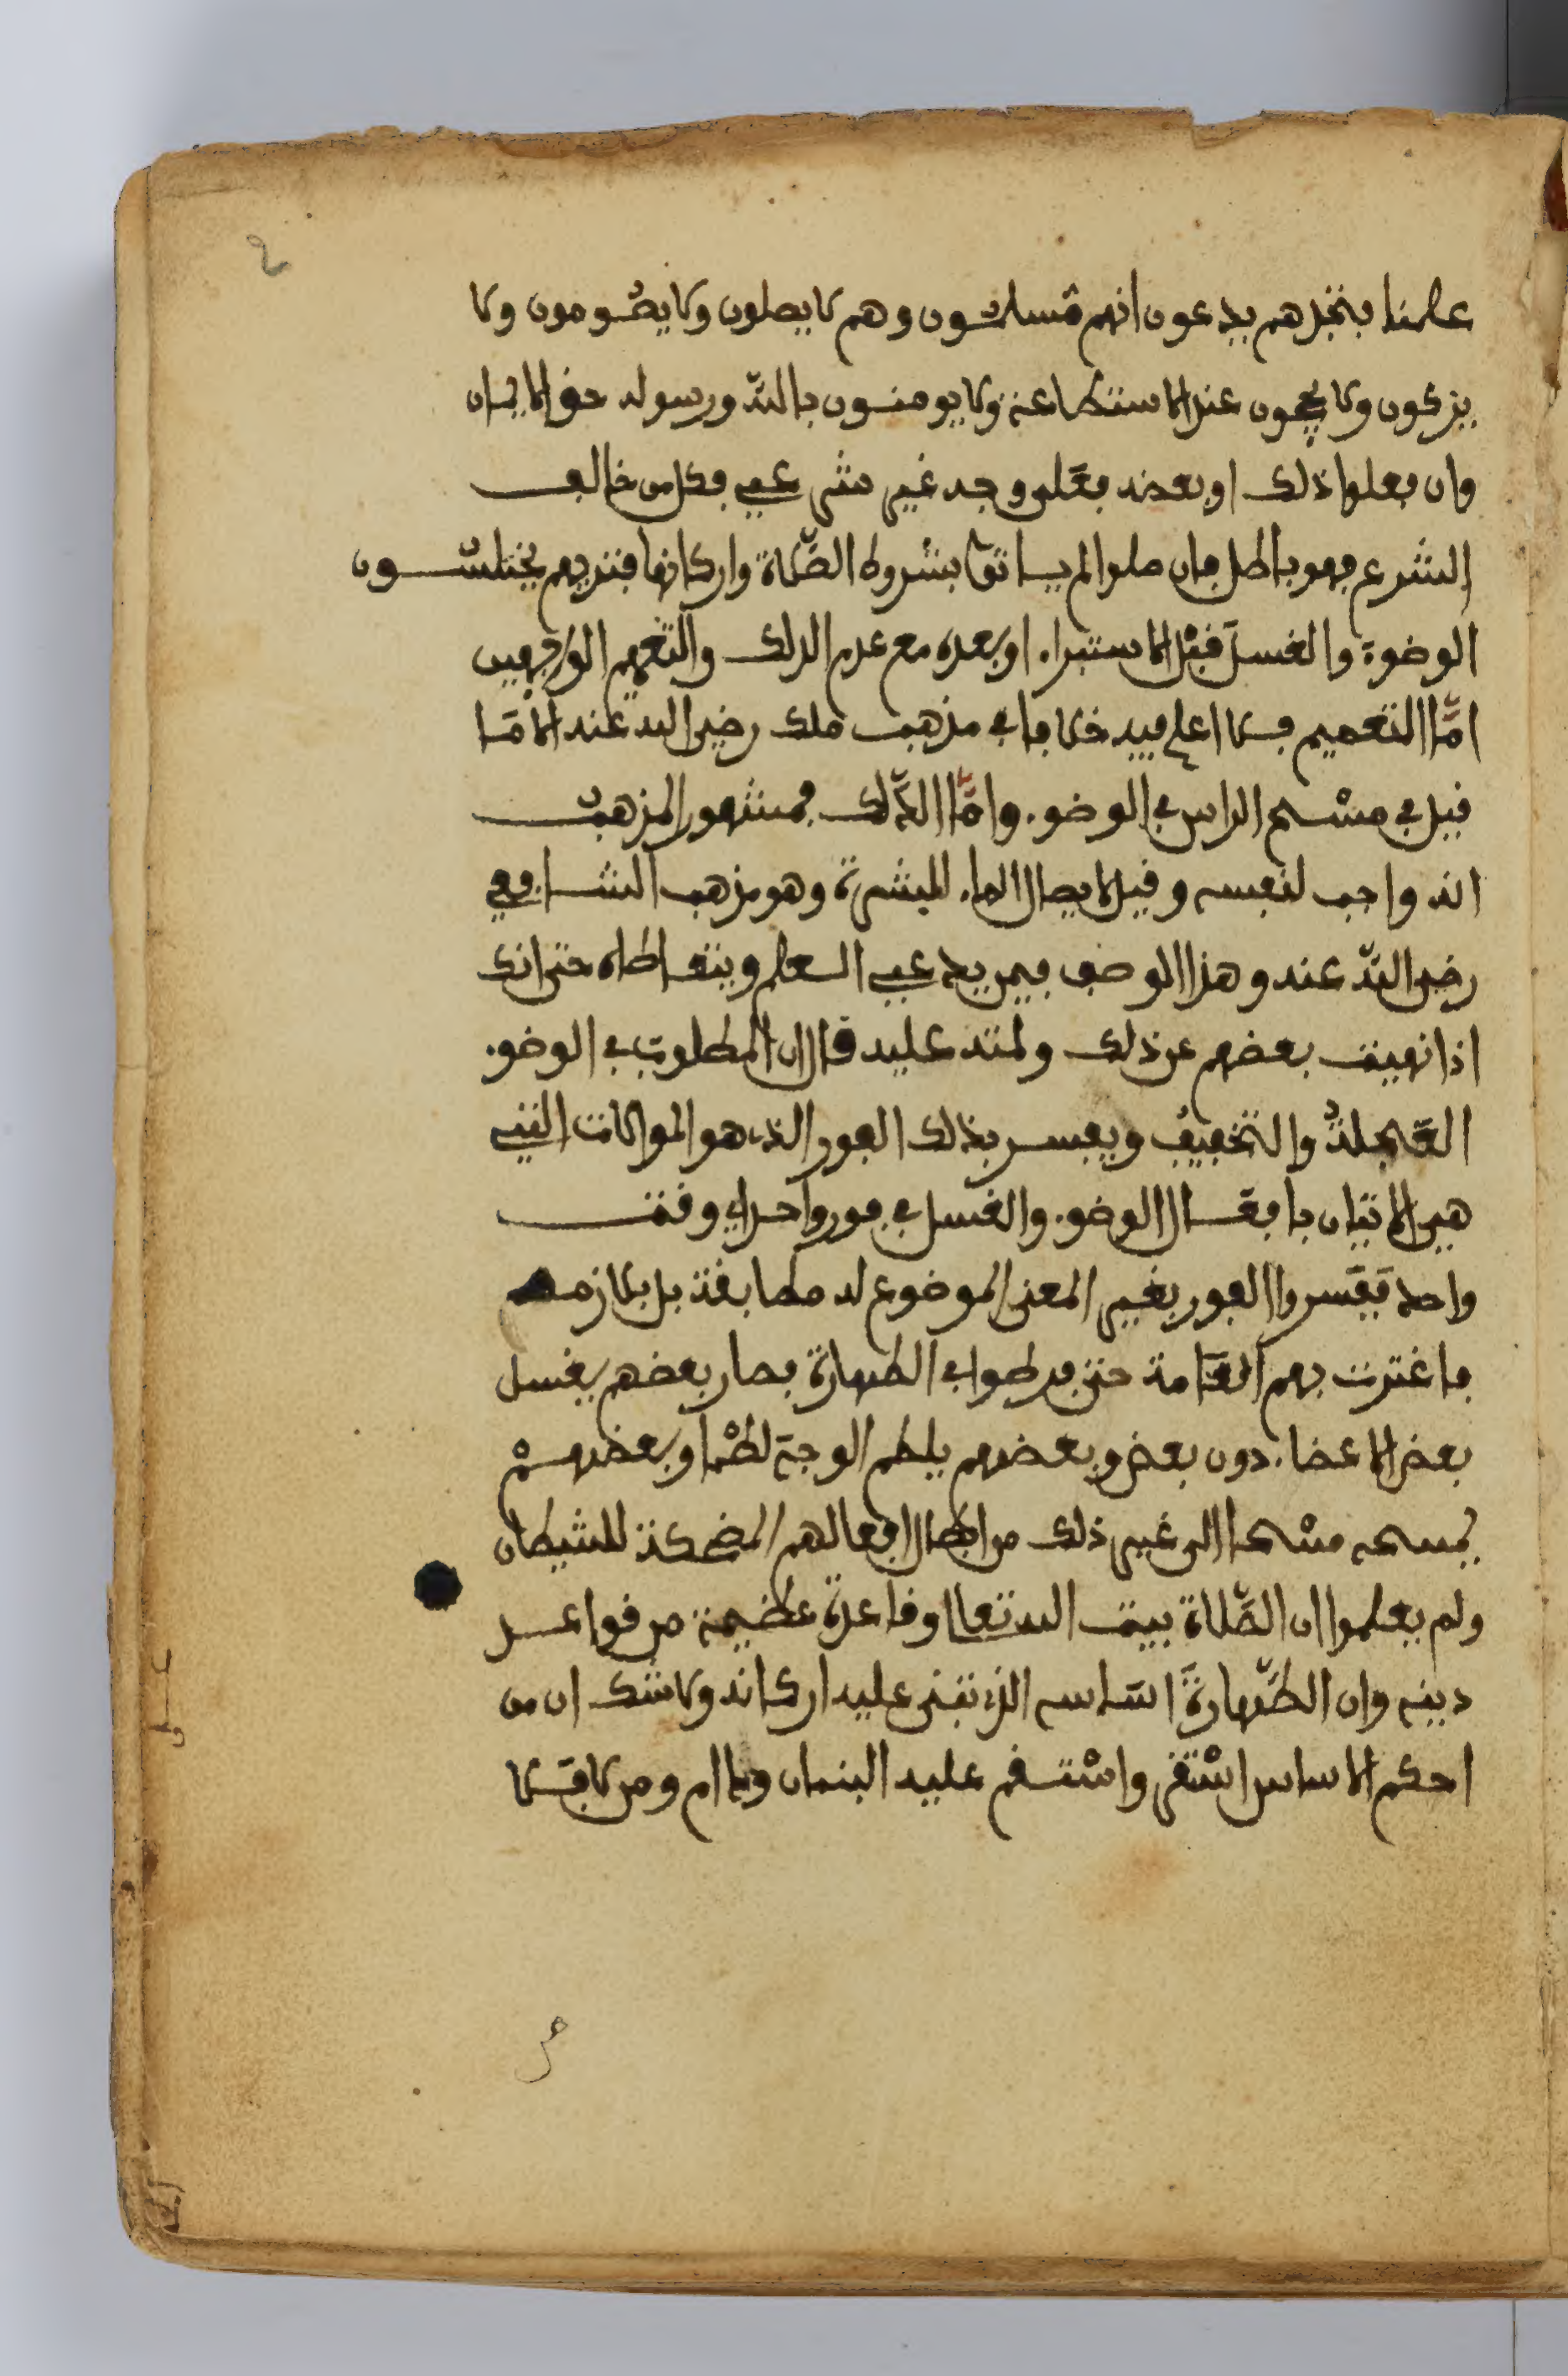 علمنا فتجدهم يدعون انهم مسلمون وهم لا يصلون ولا يصومون ولا
يزكون ولا يحجون عند الاستطاعة ولا يومنون بالله ورسوله حق الايمان
وان فعلوا ذلك او بعضه فعلى وجه غير شرعي فكل من خالف
الشرع فهو باطل فان صلوا لم ياتوا بشروط الصلاة واركانها فتريهم يختلسون
الوضوء والغسل قبل الاستبراء او بعده مع عدم الدلك والتعميم الواجبين
امّا التعميم فلا اعلم فيه خلافا في مذهب ملك رضي الله عنه الا ما
قيل في مسْح الراس في الوضوء وامّا الدّلك فمشهور المذهب
انه واجب لنفسه وقيل لايصال الماء للبشرة وهو مذهب الشافعي
رضي الله عنه وهذا الوصف فيمن يدعي العلم ويتعاطاه حتى انك
اذا نهيت بعضهم عن ذلك ولمته عليه قال ان المطلوب في الوضوء
العجلة والتخفيف ويفسر بذلك الفور الذي هو الموالات التي
هي الاتيان بافعال الوضوء والغسل في فور واحد اي وقت
واحد ففسروا الفور بغير المعنى الموضوع له مطابقة بل بلازمه
فاغترت بهم العامة حتى فرطوا في الطهارة فصار بعضهم يغسل
بعض الاعضاء دون بعض وبعضهم يلطم الوجه لطما وبعضهم
يمسحه مسْحا الى غير ذلك من ابطال افعالهم المضحكة للشيطان
ولم يعلموا ان الصّلاة بيت الله تعالى وقاعدة عظيمة من قواعد
دينه وان الطّهارة اساسه الذي تبنى عليه اركانه ولا شك ان من
احكم الاساس اسْتقر واسْتقم عليه البنيان ودام ومن لا فلا